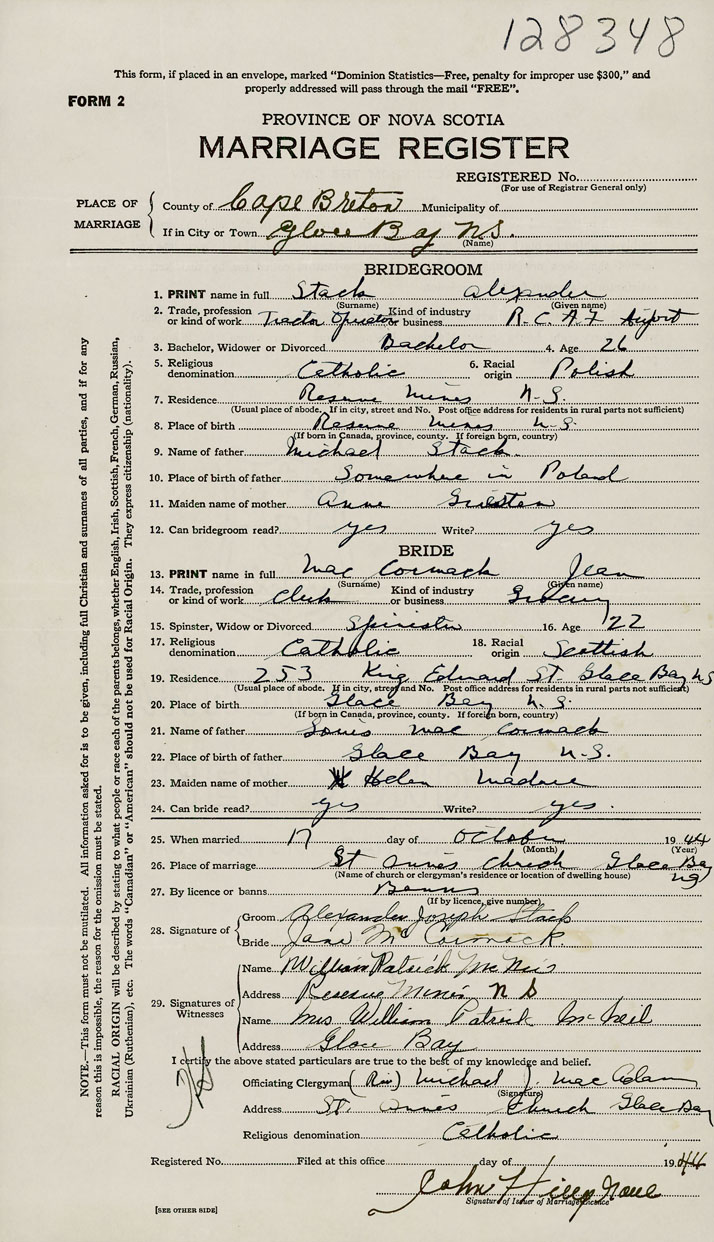 128348
This form, if placed in an envelope, marked "Dominion Statistics—Free, penalty for improper use $300," and
properly addressed will pass through the mail "FREE".
FORM 2
PROVINCE OF NOVA SCOTIA
MARRIAGE REGISTER
REGISTERED No.
(For use of Registrar General only)
PLACE OF MARRIAGE
County of Cape Breton Municipality of
If in City or Town Glace Bay N.S.
(Name)
BRIDEGROOM
1. PRINT name in full Stack Alexander
(Surname) (Given name)
2. Trade, profession or kind of work Tractor Operator Kind of industry or business R.C.A.F Airport
3. Bachelor, Widower or Divorced Bachelor 4. Age 26
5. Religious denomination Catholic 6. Racial origin Polish
7. Residence Reserve Mines N.S.
(Usual place of abode. If in city, street and No. Post office address for residents in rural parts not sufficient)
8. Place of birth Reserve Mines N.S.
(If born in Canada, province, county. If foreign born, country)
9. Name of father Michael Stack
10. Place of birth of father Somewhere in Poland
11. Maiden name of mother Anne
12. Can bridegroom read? yes Write? yes
BRIDE
13. PRINT name in full Mac Cormack Jean
(Surname) (Given name)
14. Trade, profession or kind of work Clerk Kind of industry or business Grocery
15. Spinster, Widow or Divorced Spinster 16. Age 22
17. Religious denomination Catholic 18. Racial origin Scottish
19. Residence 253 King Edward St. Glace Bay NS
(Usual place of abode. If in city, street and No. Post office address for residents in rural parts not sufficient)
20. Place of birth Glace Bay N.S.
(If born in Canada, province, county. If foreign born, country)
21. Name of father Mac Cormack
22. Place of birth of father Glace Bay N.S.
23. Maiden name of mother Helen
24. Can bride read? yes Write? yes.
25. When married 17 day of October 1944
(Month) (Year)
26. Place of marriage St Church Glace Bay NS
(Name of church or clergyman's residence or location of dwelling house)
27. By licence or banns Banns
(If by licence, give number)
28. Signature of
Groom Alexander Joseph Stack
Bride Jane McCormack.
29. Signatures of Witnesses
Name William Patrick
Address Reserve Mines N S
Name Mrs William Patrick McNeil
Address Glace Bay
I certify the above stated particulars are true to the best of my knowledge and belief.
Officiating Clergyman (Rev) Michael J. Mac Adam
(Signature)
Address St. Church Glace Bay
Religious denomination Catholic
Registered No. Filed at this office day of 1944
John
Signature of Issuer of Marriage Licence
[SEE OTHER SIDE]
NOTE.—This form must not be mutilated. All information asked for is to be given, including full Christian and surnames of all parties, and if for any
reason this is impossible, the reason for the omission must be stated.
RACIAL ORIGIN will be described by stating to what people or race each of the parents belongs, whether English, Irish, Scottish, French, German, Russian,
Ukrainian (Ruthenian), etc. The words "Canadian" or "American" should not be used for Racial Origin. They express citizenship (nationality).